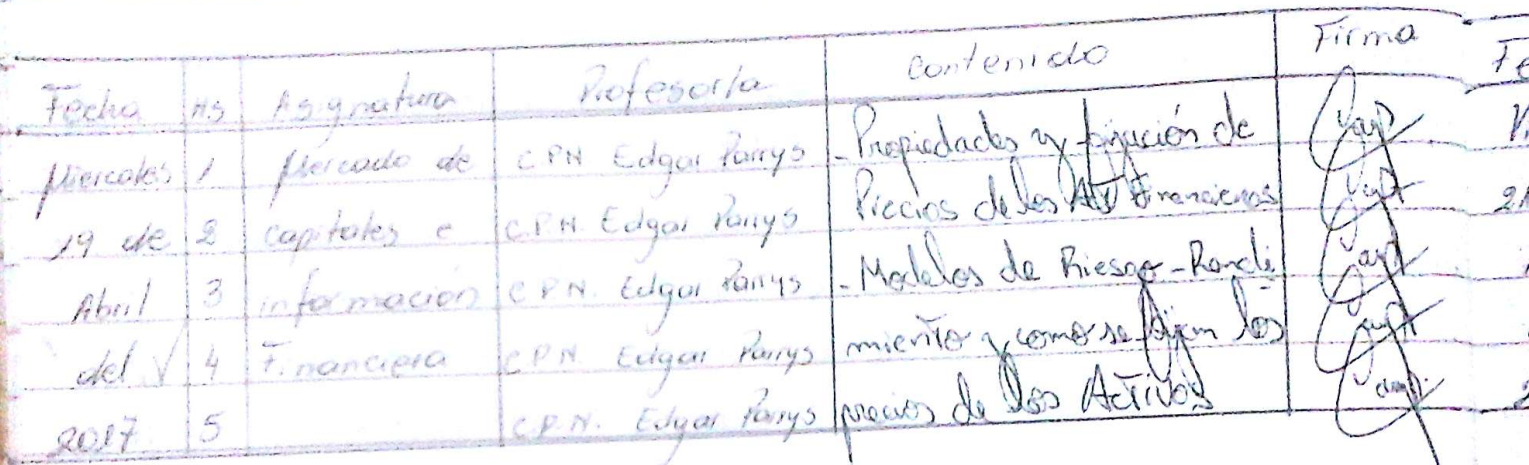 Fecha Hs Asignatura Profesor/a Contenido Firma Fe
Miercoles 1 Mercado de C.P.N. Edgar Parrys - Propiedades y fijación de
19 de 2 capitales e C.P.N. Edgar Parrys Precios de los Financieros
Abril 3 información C.P.N. Edgar Parrys - Modelos de Riesgo - Rendi
del 4 Financiera C.P.N. Edgar Parrys miento y como se fijan los
2017 5 C.P.N. Edgar Parrys precios de los Activos